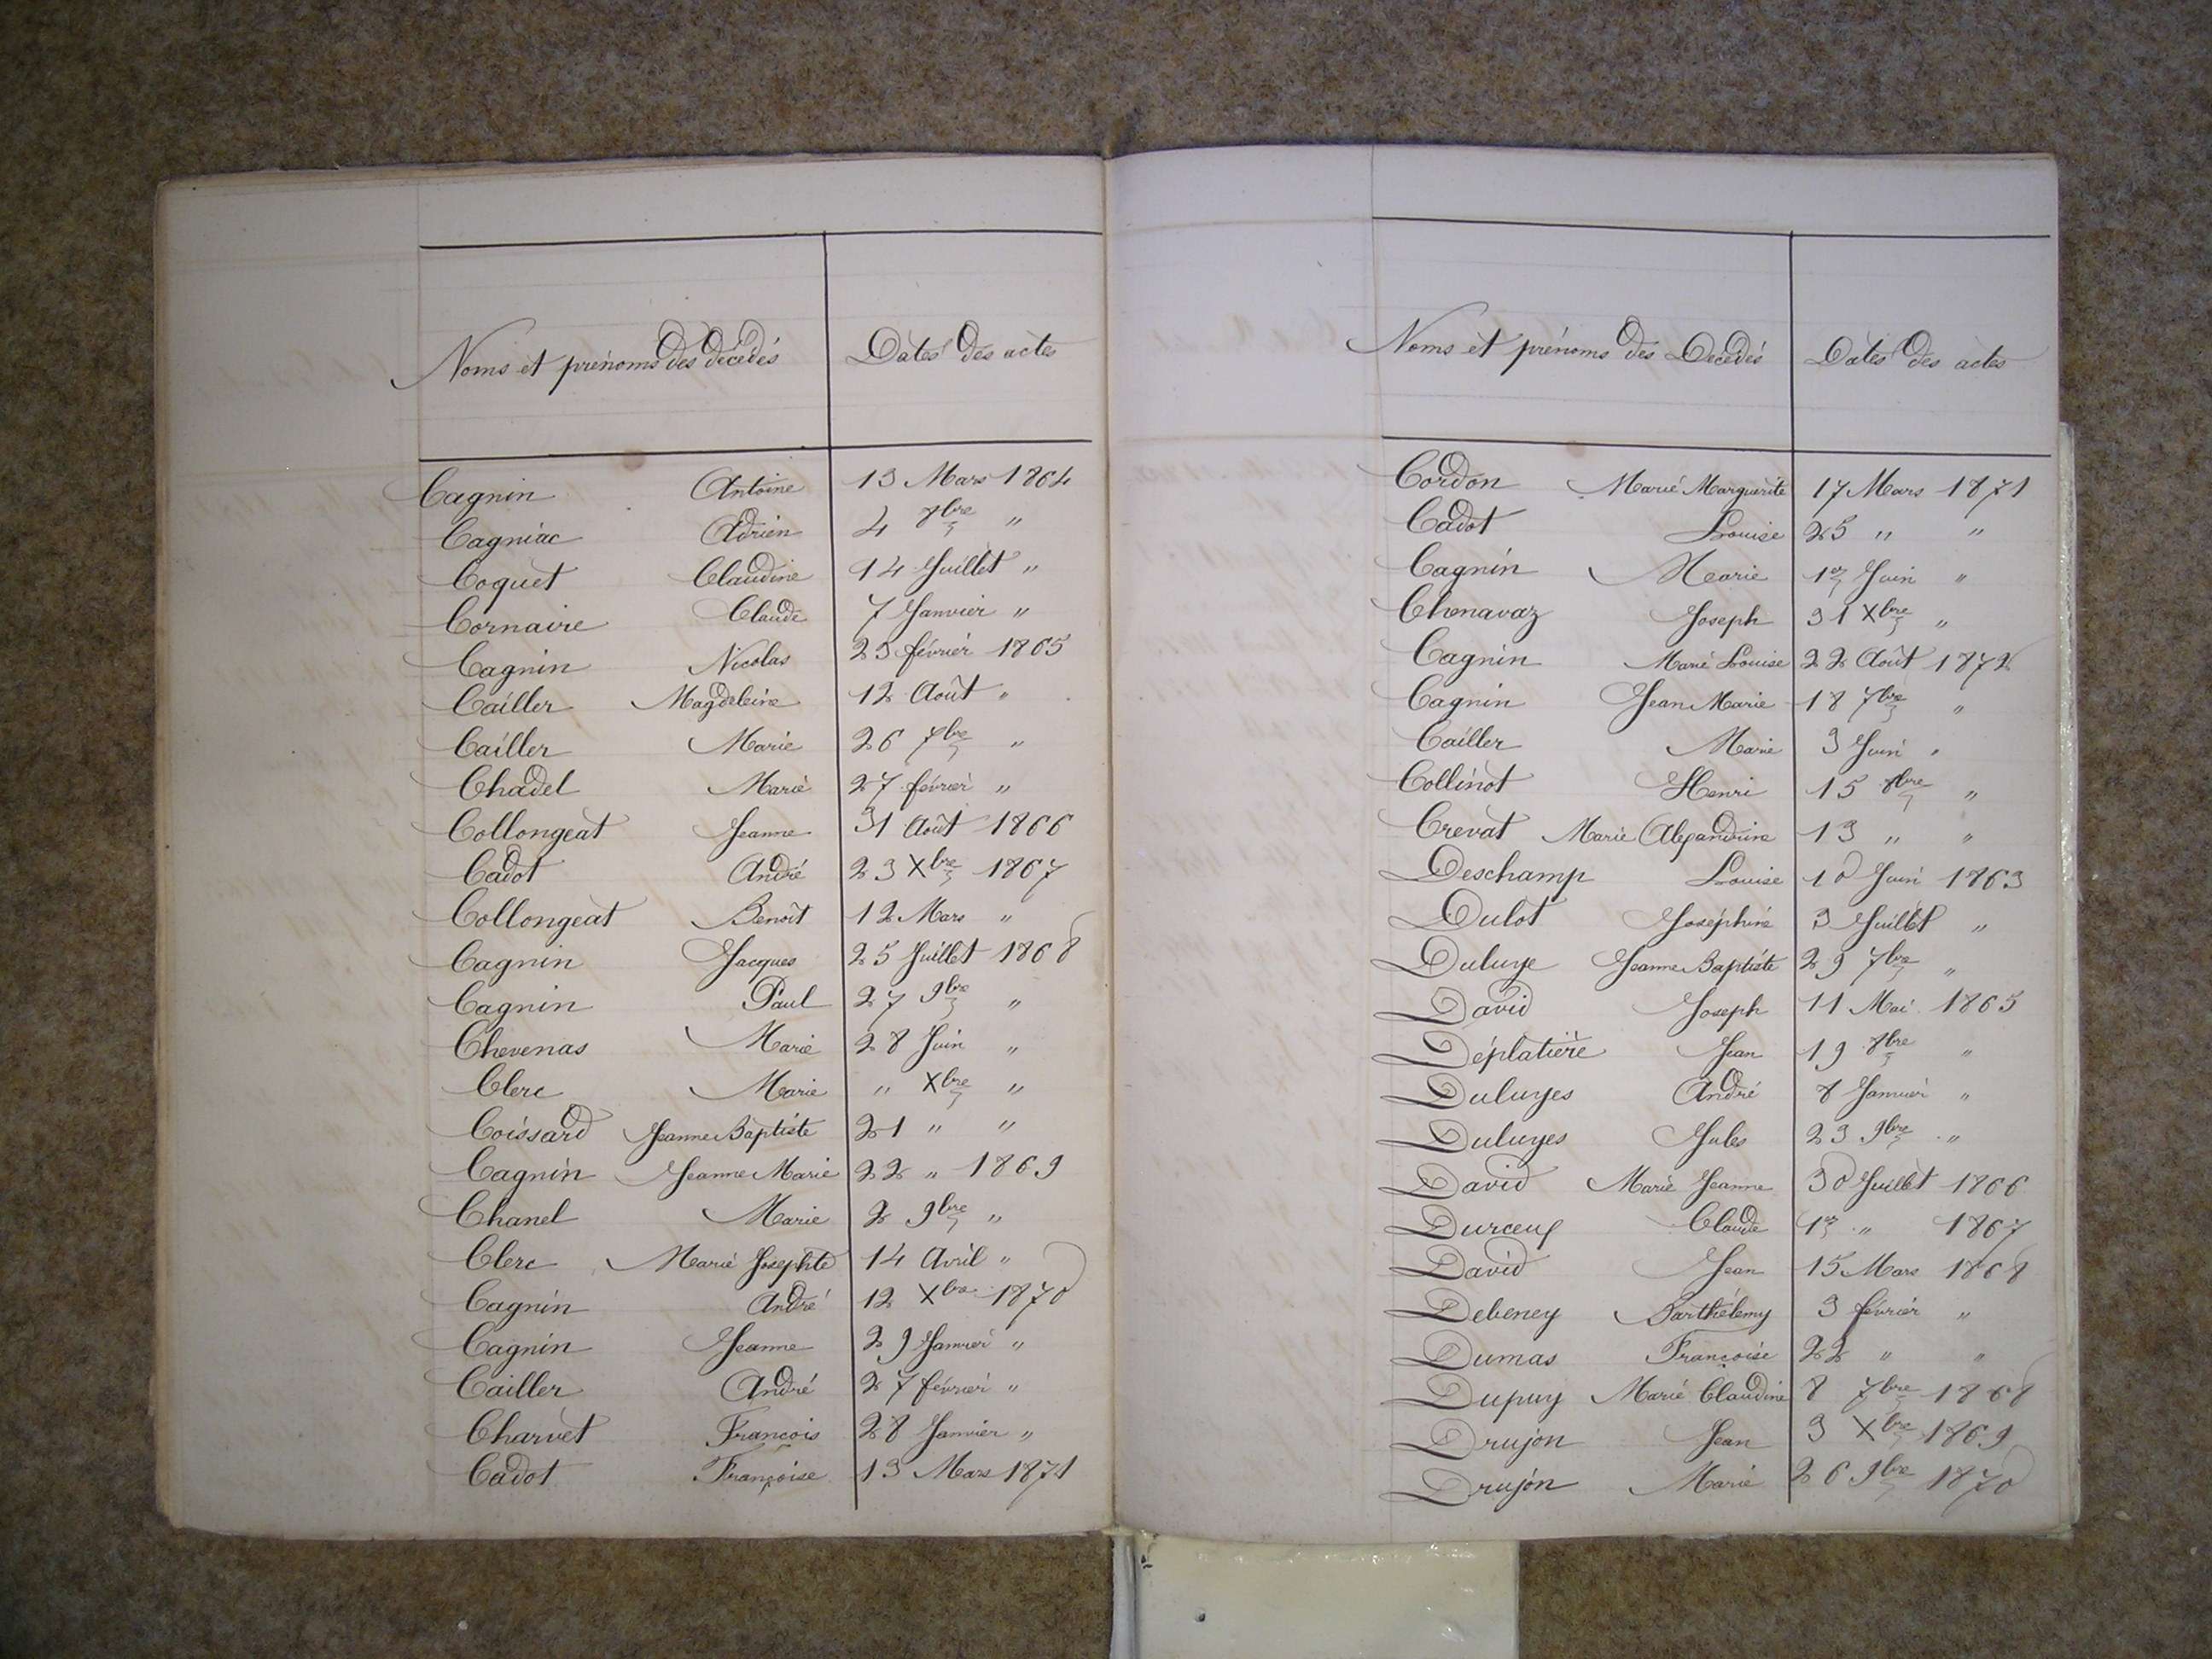 Noms et prénoms des décédés Dates des actes
Cagnin Antoine 13 Mars 1864
Cagniac Adrien 4 8bre "
Coquet Claudine 14 Juillet "
Cornaire Claude 7 Janvier "
Cagnin Nicolas 23 février 1865
Cailler Magdeleine 12 Août "
Cailler Marie 26 7bre "
Chadel Marie 27 février "
Collongeat Jeanne 31 Août 1866
Cadot André 23 Xbre 1867
Collongeat Benoit 12 Mars "
Cagnin Jacques 25 Juillet 1868
Cagnin Paul 27 9bre "
Chevenas Marie 28 Juin "
Clerc Marie " Xbre "
Coissard Jeanne Baptiste 21 " "
Cagnin Jeanne Marie 22 " 1869
Chanel Marie 2 9bre "
Clerc Marie Josephte 14 Avril "
Cagnin André 12 Xbre 1870
Cagnin Jeanne 29 Janvier "
Cailler André 27 février "
Charvet François 28 Janvier "
Cadot Françoise 13 Mars 1871
Noms et prénoms des Décédés Dates des actes
Cordon Marie Marguerite 17 Mars 1871
Cadot Louise 25 " "
Cagnin Marie 1er Juin "
Chenavaz Joseph 31 Xbre "
Cagnin Marie Louise 22 Août 1872
Cagnin Jean Marie 18 7bre "
Cailler Marie 3 Juin "
Collinot Henri 15 8bre "
Crevat Marie Alexandrine 13 " "
Deschamp Louise 10 Juin 1863
Dulot Joséphine 3 Juillet "
Duluye Jeanne Baptiste 29 7bre "
David Joseph 11 Mai 1865
Déplatière Jean 19 8bre "
Duluyes André 8 Janvier "
Duluyes Jules 23 9bre "
David Marie Jeanne 30 Juillet 1866
Durceuf Claude 1er " 1867
David Jean 15 Mars 1868
Debeney Barthélemy 3 février "
Dumas Françoise 22 " "
Dupuy Marie Claudine 8 7bre 1868
Drujon Jean 3 Xbre 1869
Drujon Marie 26 9bre 1870